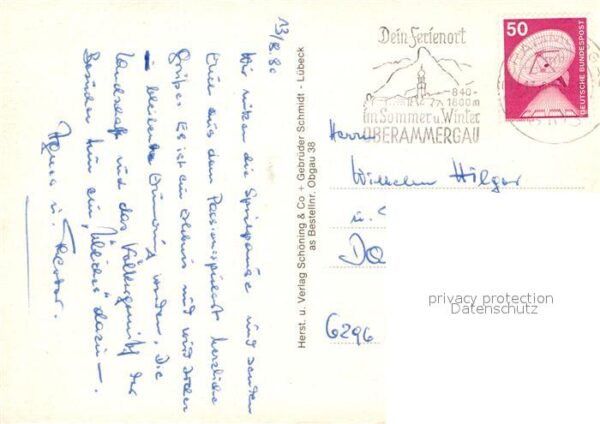 13/8.80
Wir nützen die Spielpause und senden
Euch aus dem Passionsspielort herzliche
Grüße. Es ist ein Erlebnis und wird sicher
in bleibender Erinnerung werden. Die
Landschaft und das Völkergemisch der
Besucher tun ein "übliches" dazu –.
Agnes u.
Herst. u. Verlag Schöning & Co + Gebrüder Schmidt - Lübeck
as Bestellnr. Obgau 38
Dein Ferienort
840-
1600m
im Sommer u. Winter
OBERAMMERGAU
50
DEUTSCHE BUNDESPOST
Herrn
Wilhelm Hilger
u.
6296
privacy protection
Datenschutz